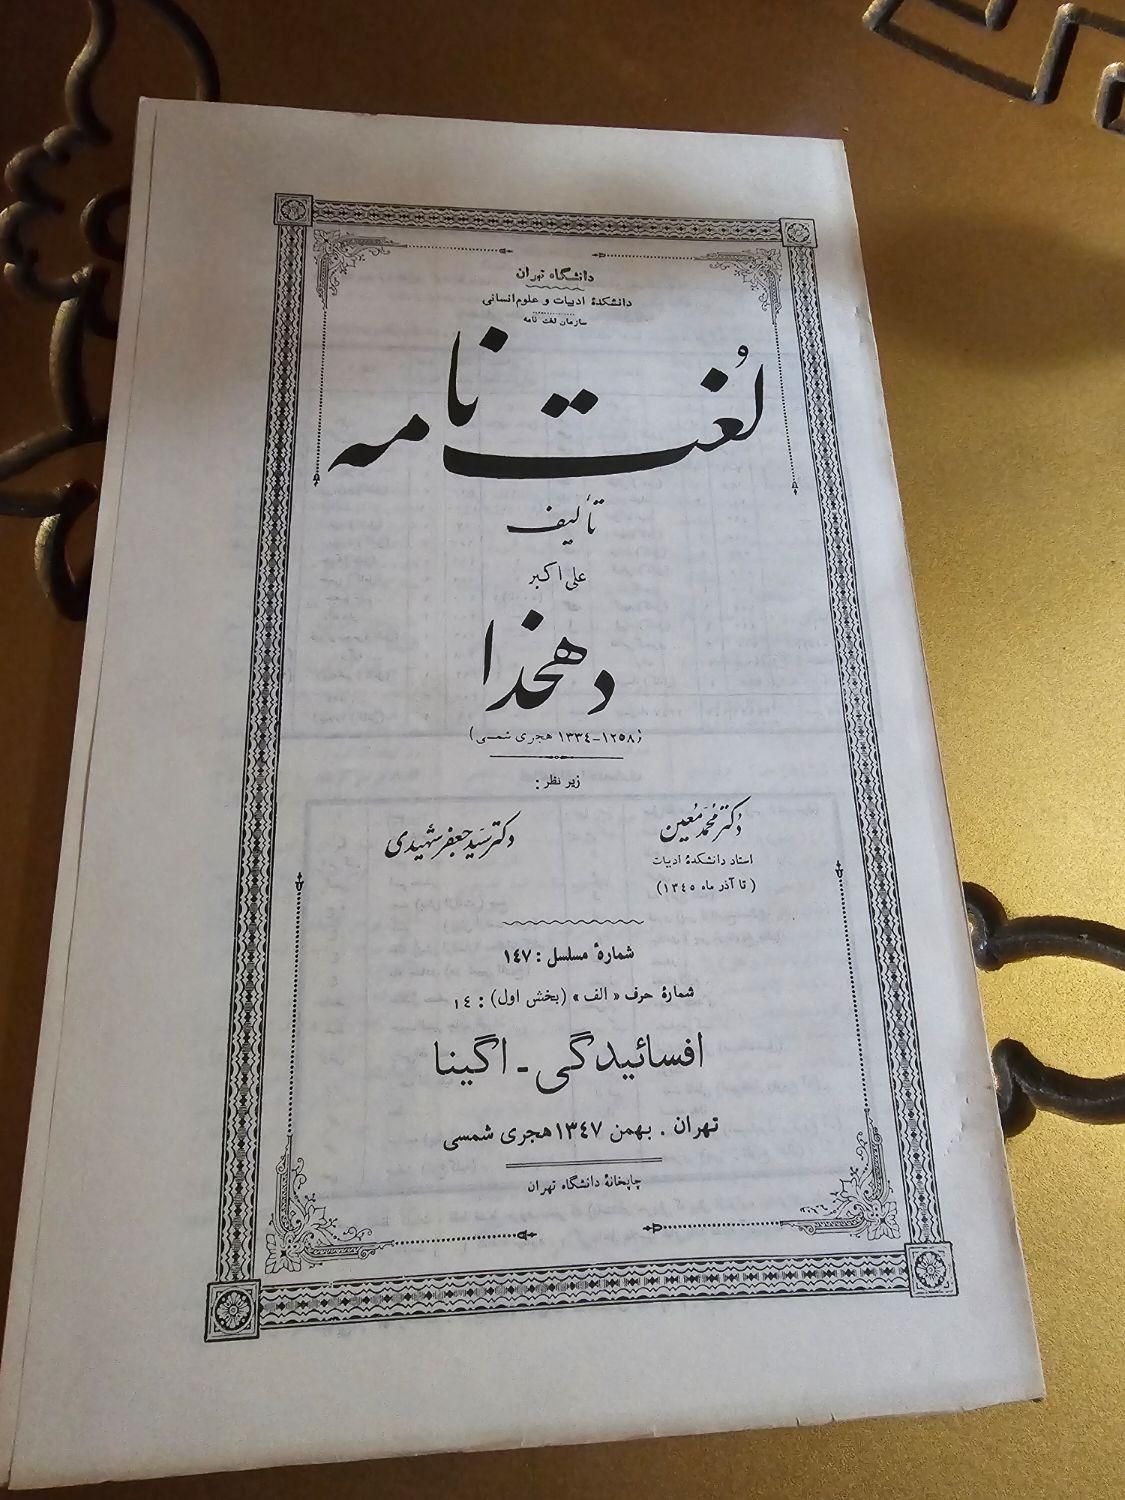 دانشگاه تهران
دانشکدهٔ ادبیات و علوم انسانی
سازمان لغت نامه
لُغت نامه
تألیف
علی اکبر
دهخدا
(۱۲۵۸-۱۳۳٤ هجری شمسی)
زیر نظر :
دکتر مُحمّد مُعین دکتر سیّد جعفر شهیدی
استاد دانشکدهٔ ادبیات
(تا آذر ماه ۱۳٤۵)
شمارهٔ مسلسل : ۱٤۷
شمارهٔ حرف « الف » (بخش اول) : ۱٤
افسائیدگی - اگینا
تهران . بهمن ۱۳٤۷ هجری شمسی
چاپخانهٔ دانشگاه تهران